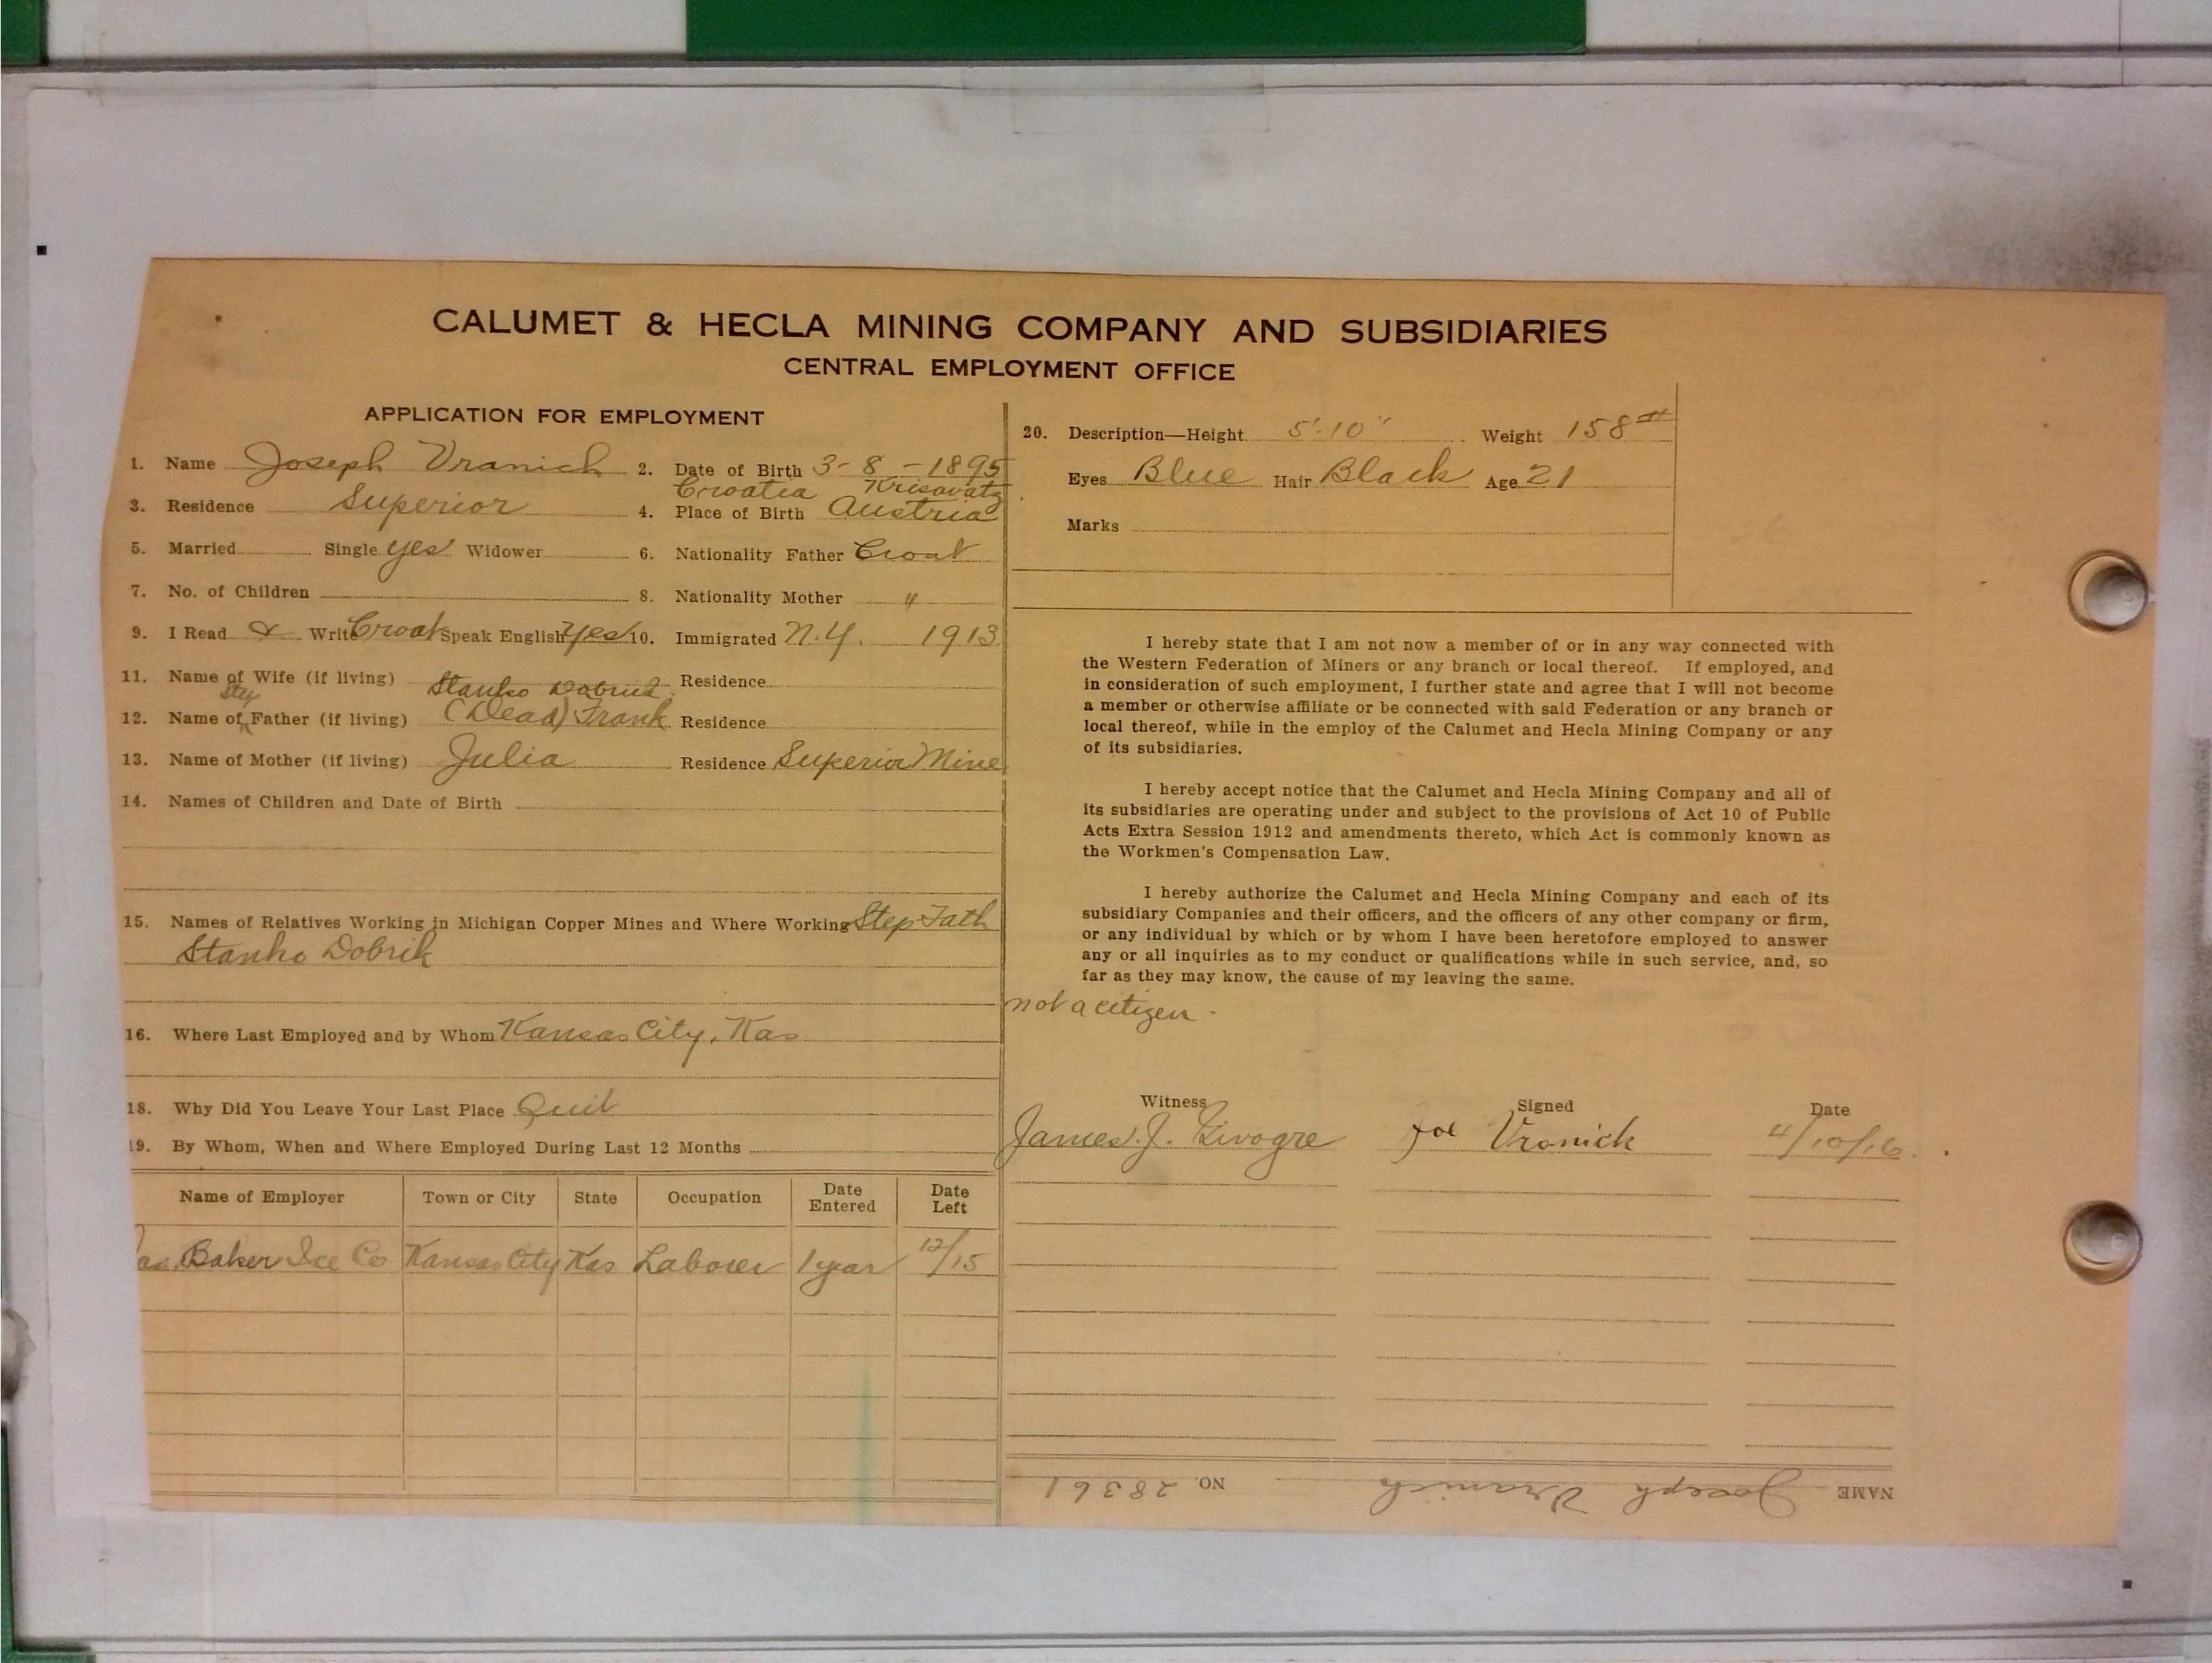 CALUMET & HECLA MINING COMPANY AND SUBSIDIARIES
CENTRAL EMPLOYMENT OFFICE
APPLICATION FOR EMPLOYMENT
1. Name Joseph Vranich 2. Date of Birth 3-8-1895
Croatia
3. Residence Superior 4. Place of Birth Austria
5. Married Single yes Widower 6. Nationality Father Croat
7. No. of Children 8. Nationality Mother "
9. I Read & Write Croat Speak English Yes 10. Immigrated N.Y. 1913
11. Name of Wife (if living) Residence
Step Stanko
12. Name of Father (if living) (Dead) Frank Residence
13. Name of Mother (if living) Julia Residence Superior Mine
14. Names of Children and Date of Birth
15. Names of Relatives Working in Michigan Copper Mines and Where Working Step-Fath
Stanko Dobrik
16. Where Last Employed and by Whom Kansas City, Kas
18. Why Did You Leave Your Last Place Quit
19. By Whom, When and Where Employed During Last 12 Months
Name of Employer Town or City State Occupation Date Entered Date Left
Baker Ice Co Kansas City Kas Laborer 1 year 12/15
20. Description—Height 5'-10" Weight 158#
Eyes Blue Hair Black Age 21
Marks
I hereby state that I am not now a member of or in any way connected with
the Western Federation of Miners or any branch or local thereof. If employed, and
in consideration of such employment, I further state and agree that I will not become
a member or otherwise affiliate or be connected with said Federation or any branch or
local thereof, while in the employ of the Calumet and Hecla Mining Company or any
of its subsidiaries.
I hereby accept notice that the Calumet and Hecla Mining Company and all of
its subsidiaries are operating under and subject to the provisions of Act 10 of Public
Acts Extra Session 1912 and amendments thereto, which Act is commonly known as
the Workmen's Compensation Law.
I hereby authorize the Calumet and Hecla Mining Company and each of its
subsidiary Companies and their officers, and the officers of any other company or firm,
or any individual by which or by whom I have been heretofore employed to answer
any or all inquiries as to my conduct or qualifications while in such service, and, so
far as they may know, the cause of my leaving the same.
not a citizen.
Witness Signed Date
James J. Joe Vranick 4/10/16.
NAME Joseph Vranich NO. 28361